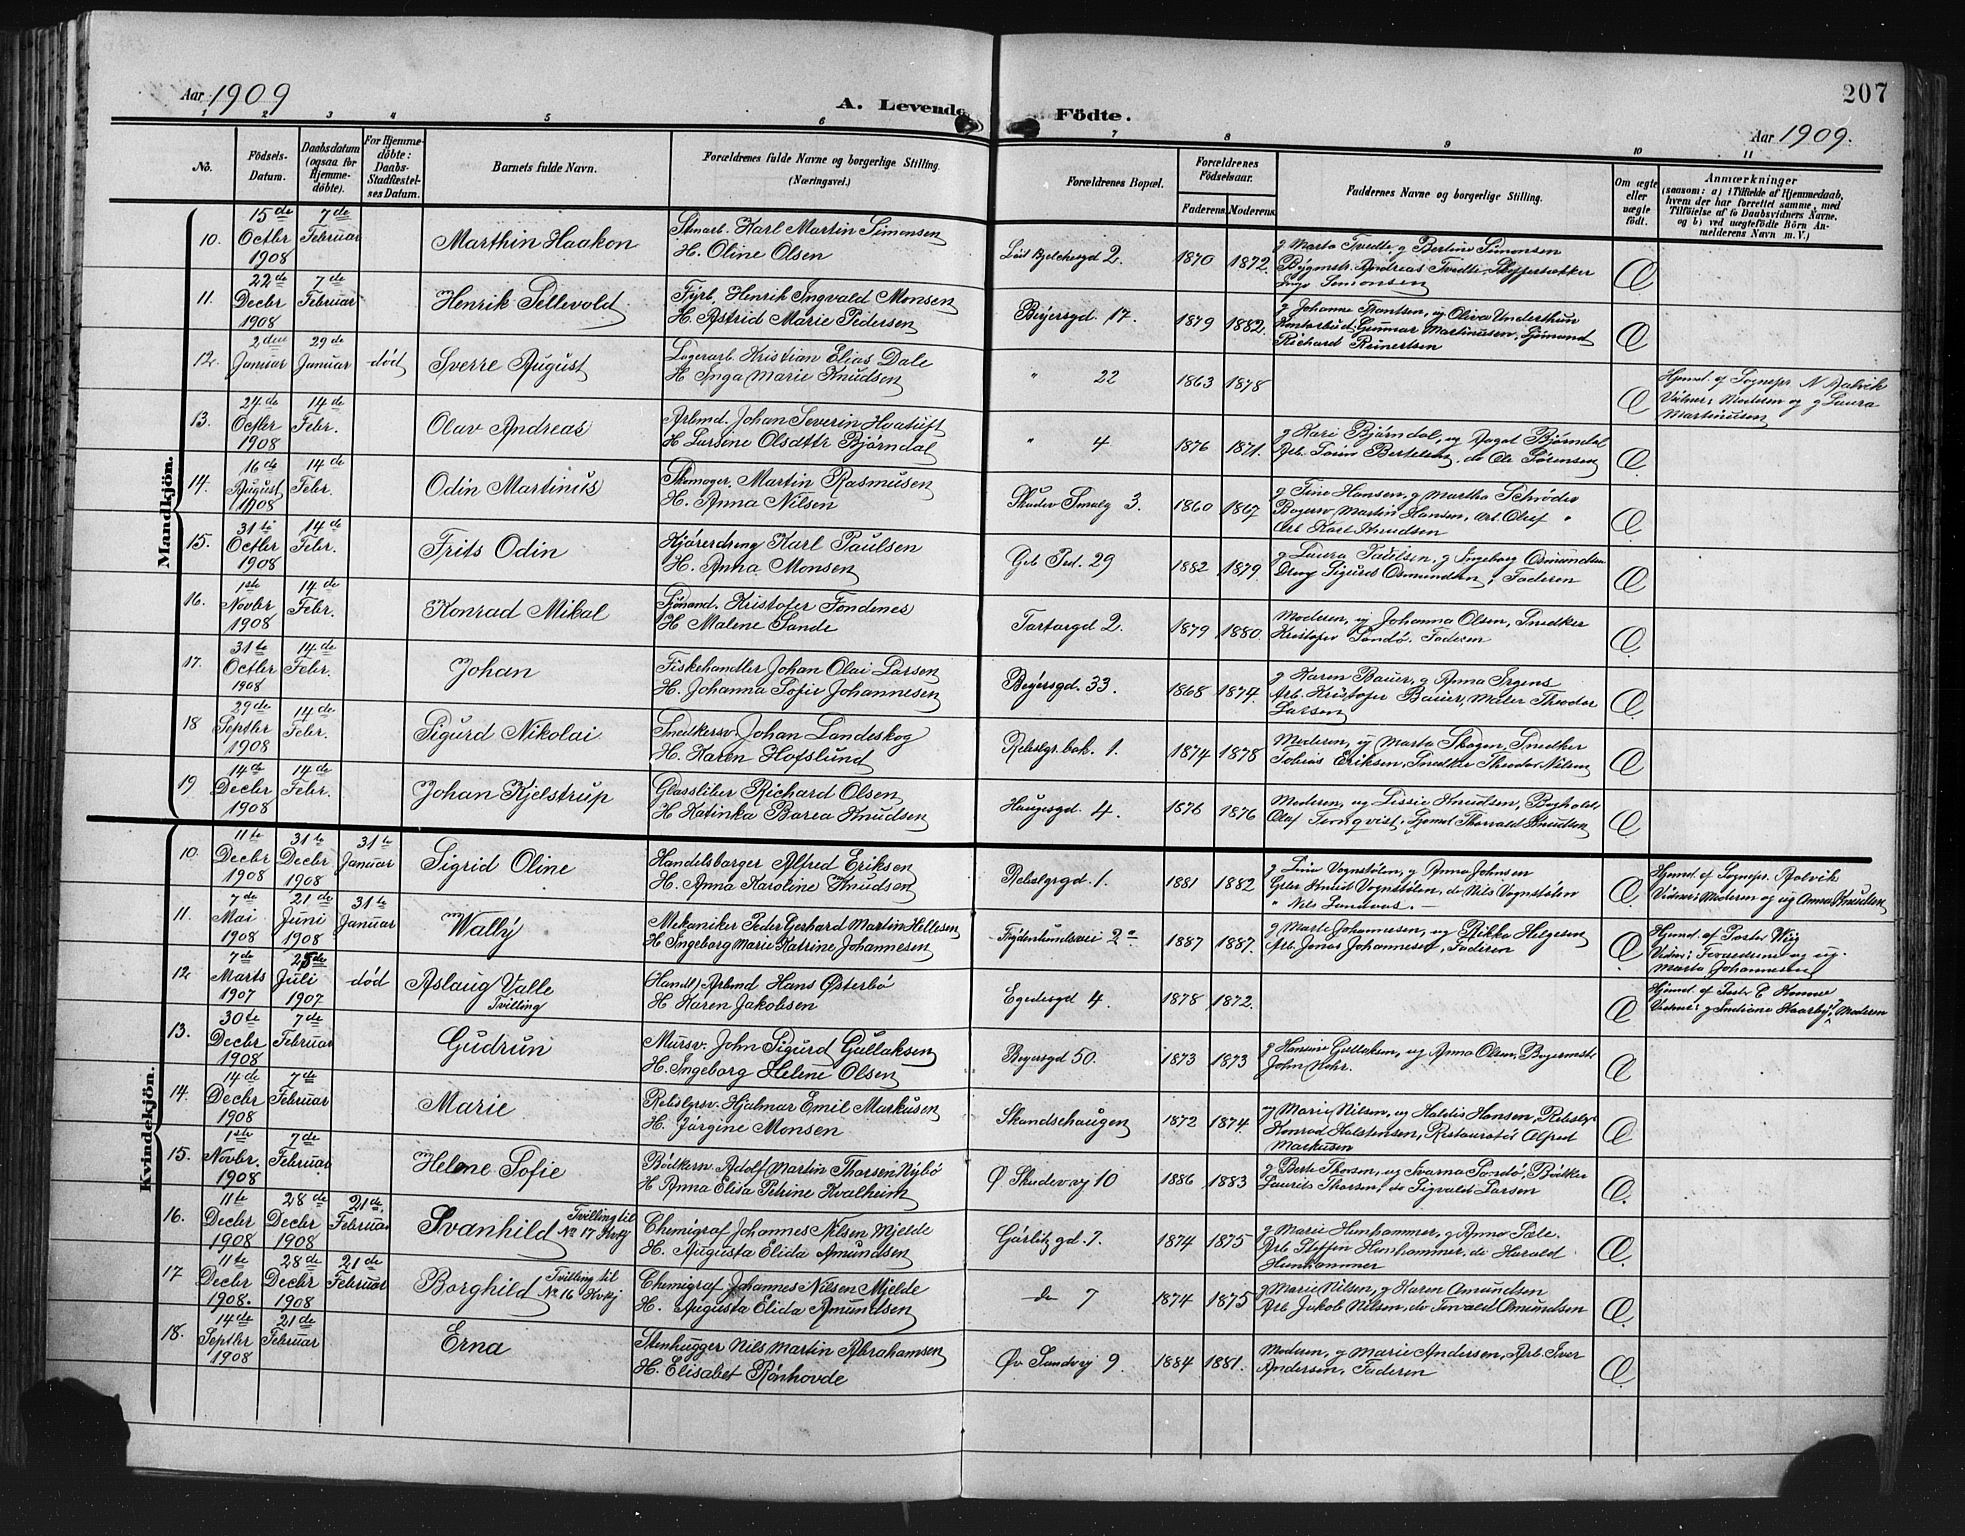 207
Aar 1909
A. Levende Födte.
Aar 1909.
1 2 3 4 5 6 7 8 9 10 11
No.
Födsels-Datum.
Daabsdatum (ogsaa for Hjemme-döbte).
For Hjemme-döbte: Daabs-Stadfæstel-ses Datum.
Barnets fulde Navn.
Forældrenes fulde Navne og borgerlige Stilling.
(Næringsvei.)
Forældrenes Bopæl.
Forældrenes Födselsaar.
Faderens. Moderens.
Faddernes Navne og borgerlige Stilling.
Om ægte eller uægte födt.
Anmærkninger
(saasom: a) i Tilfælde af Hjemmedaab, hvem der har forrettet samme, med Tilföielse af to Daabsvidners Navne, og b) ved uægtefödte Börn Anmelderens Navn m. V.)
Mandkjön.
10. 15de Octbr 1908 7de Februar Marthin Haakon
Karl Martin Simonsen
H. Oline Olsen
2. 1870 1872.
g Marta Tvedte g Bertine Simonsen
Bygmstr. Andreas Tvedte
Simonsen
11. 22de Decbr 1908 7de Februar Henrik Sellevold
Fyrb. Henrik Ingvald Monsen
H. Astrid Marie Pedersen
Beyersgd. 17. 1879 1882.
Gunnar Martinussen, Sjömand
Richard Reinertsen
12. 2den Januar 29de Januar död Sverre August
Lagerarb. Kristian Elias Dale
H. Inga Marie Knudsen
" 22 1863 1878
Hjemd. af Sognepr.
Vidner: Moderen og g Laura
Martinussen
13. 24de Octbr 1908 14de Febr. Olav Andreas
Arbmd. Johan Severin
H. Larsine Olsdttr Bjørndal
" 4 1876 1871.
g Kari Bjørndal, ug Aagot Bjørndal
Arb. Bertelsen, do Ole Sørensen
14. 16de August 1908 14de Febr. Odin Martinus
Skomager. Martin Rasmusen
H. Anna Nilsen
3. 1860 1867
g Tine Hansen, g Martha Schrøder
Martin Hansen, arb. Oluf "
Arb Karl Knudsen
15. 31te Octbr 1908 14de Febr. Frits Odin
Kjöredreng Karl Paulsen
H. Anna Monsen
29 1882 1879
g Laura Paulsen, g Ingeborg Osmundsen
Dreng Sigurd Osmundsen, Faderen
16. 1ste Novbr 1908 14de Febr. Konrad Mikal
Sjömand. Kristofer Fondenes
H Malene Sande
Tartargd 2. 1879 1880.
Moderen, ug Johanna Olsen, Snedker
Kristofer Faderen
17. 31te Octbr 1908 14de Febr. Johan
Fiskehandler Johan Olai Larsen
H. Johanna Sofie Johannesen
Beyersgd. 33. 1868 1874.
g Karen Bauer, g Anna Irgens
Arb. Kristofer Bauer, Maler Theodor
Larsen
18 29de Septbr 1908 14de Febr. Sigurd Nikolai
Snedkersv Johan Landeskog
H. Karen Hofslund
1. 1874 1878
Moderen, ug Marta Skogen, Snedker
Tobias Eriksen, Snedker Theodor Nilsen
19 14de Decbr 1908 14de Febr. Johan Kjelstrup
Glassliber Richard Olsen
H. Katinka Barea Knudsen
Haugesgd. 4. 1876 1876
Moderen, ug Lissie Knudsen, Bogholdr
Olaf Ternqvist, Thorvald Knudsen
Kvindekjön.
10. 11te Decbr 1908 31te Decbr 1908 31te Januar Sigrid Oline
Handelsborger Alfred Eriksen
H. Anna Karoline Knudsen
1. 1881 1882
g Anna Johnsen
Vognstølen, do Nils Vognstølen
" Nils
Hjemd. af Sognepr.
Vidner: Moderen og ug Anna Knudsen
11. 7de Mai 1908 21de Juni 1908 31te Januar Wally
Mekaniker Peder Gerhard Martin Hellesen
H Ingeborg Marie Katrine Johannesen
2a 1887 1887.
g Marte Johannesen, ug Rikka Helgesen
Arb. Jonas Johannesen, Faderen
Hjemd. af Pastor Wiig
Vidner: Forældrene og ug.
Marta Johannesen
12 7de Marts 1907 25de Juli 1907 död Aslaug Valle
Tvilling
Arbmd Hans Østerbö
H Karen Jakobsen
Egedesgd 4. 1878 1872.
Hjemd. af Pastor
Moderen
13. 30te Decbr 1908 7de Februar Gudrun
Mursv. John Sigurd Gullaksen
H. Ingeborg Helene Olsen
Beyersgd 50. 1873 1873
g Hansine Gullaksen, ug Anna Olsen, Bygermstr
John Mohr.
14. 14de Decbr 1908 7de Februar Marie
Rebslgrsv. Hjalmar Emil Markusen
H. Jørgine Monsen
Skandsehaugen 1872 1874
ug Marie Nilsen, ug Haldis Hansen, Rebslgr
Konrad Halstensen, Restauratör Alfred
Markusen
15. 1ste Novbr. 1908 7de Februar Helene Sofie
Bödkersv. Adolf Martin Thorsen Nybö
H Anna Elisa Petrine Kvalheim
Ø Skudevvj 10 1886 1883
g Berte Thorsen, ug Svarna Sandö, Bödker
Laurits Thorsen, do Sigvald Larsen
16. 11te Decbr 1908 28de Decbr 1908 21de Februar Svanhild Tvilling til No 17 Kvkj
Chemigraf Johannes Nilsen Mjelde
H. Augusta Elida Amundsen
7. 1874 1875
g Marie Hunhammer, g Anna Sæle.
Arb. Steffen Hunhammer, do Harald
Hunhammer
17 11te Decbr 1908. 28de Decbr 1908 21de Februar Borghild Tvilling til No 16 Kvkj
Chemigraf Johannes Nilsen Mjelde
H. Augusta Elida Amundsen
do 7 1874 1875
g Marie Nilsen, ug Karen Amundsen
Arb Jakob Nilsen, do Torvald Amundsen
18. 14de Septbr 1908 21de Februar Erna
Stenhugger Nils Martin Abrahamsen
H. Elisabet Rönhovde
Øv Sandvvj 9. 1884 1881.
Moderen, g Marie Andersen, Arb. Iver
Andersen, Faderen